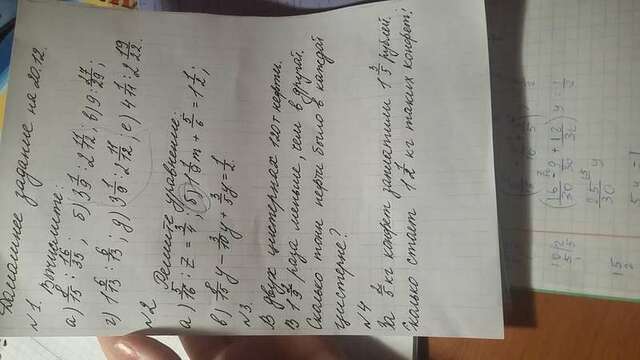 Домашнее задание на 20.12.
№1.
Вычислите:
а) 8/15 : 16/35; б) 3 1/9 : 2 11/12; в) 9 : 27/29;
г) 1 6/13 : 6/13; д) 3 1/9 : 2 11/12; е) 4 1/11 : 2 19/22.
№2
Решите уравнение:
а) 5/16 : z = 3/4; б) 1 1/9 m + 5/6 = 1 1/2;
в) 8/15 y - 3/10 y + 3/5 y = 1/2.
№3.
В двух цистернах 120т нефти.
В 1 раза меньше, чем в другой.
Сколько тонн нефти было в каждой
цистерне?
№4
За 2/5 кг конфет заплатили 1 3/5 рублей.
Сколько стоет 1 1/2 кг таких конфет!
(16/30 - 9/30 + 12/30) y
25/30 y
15
2